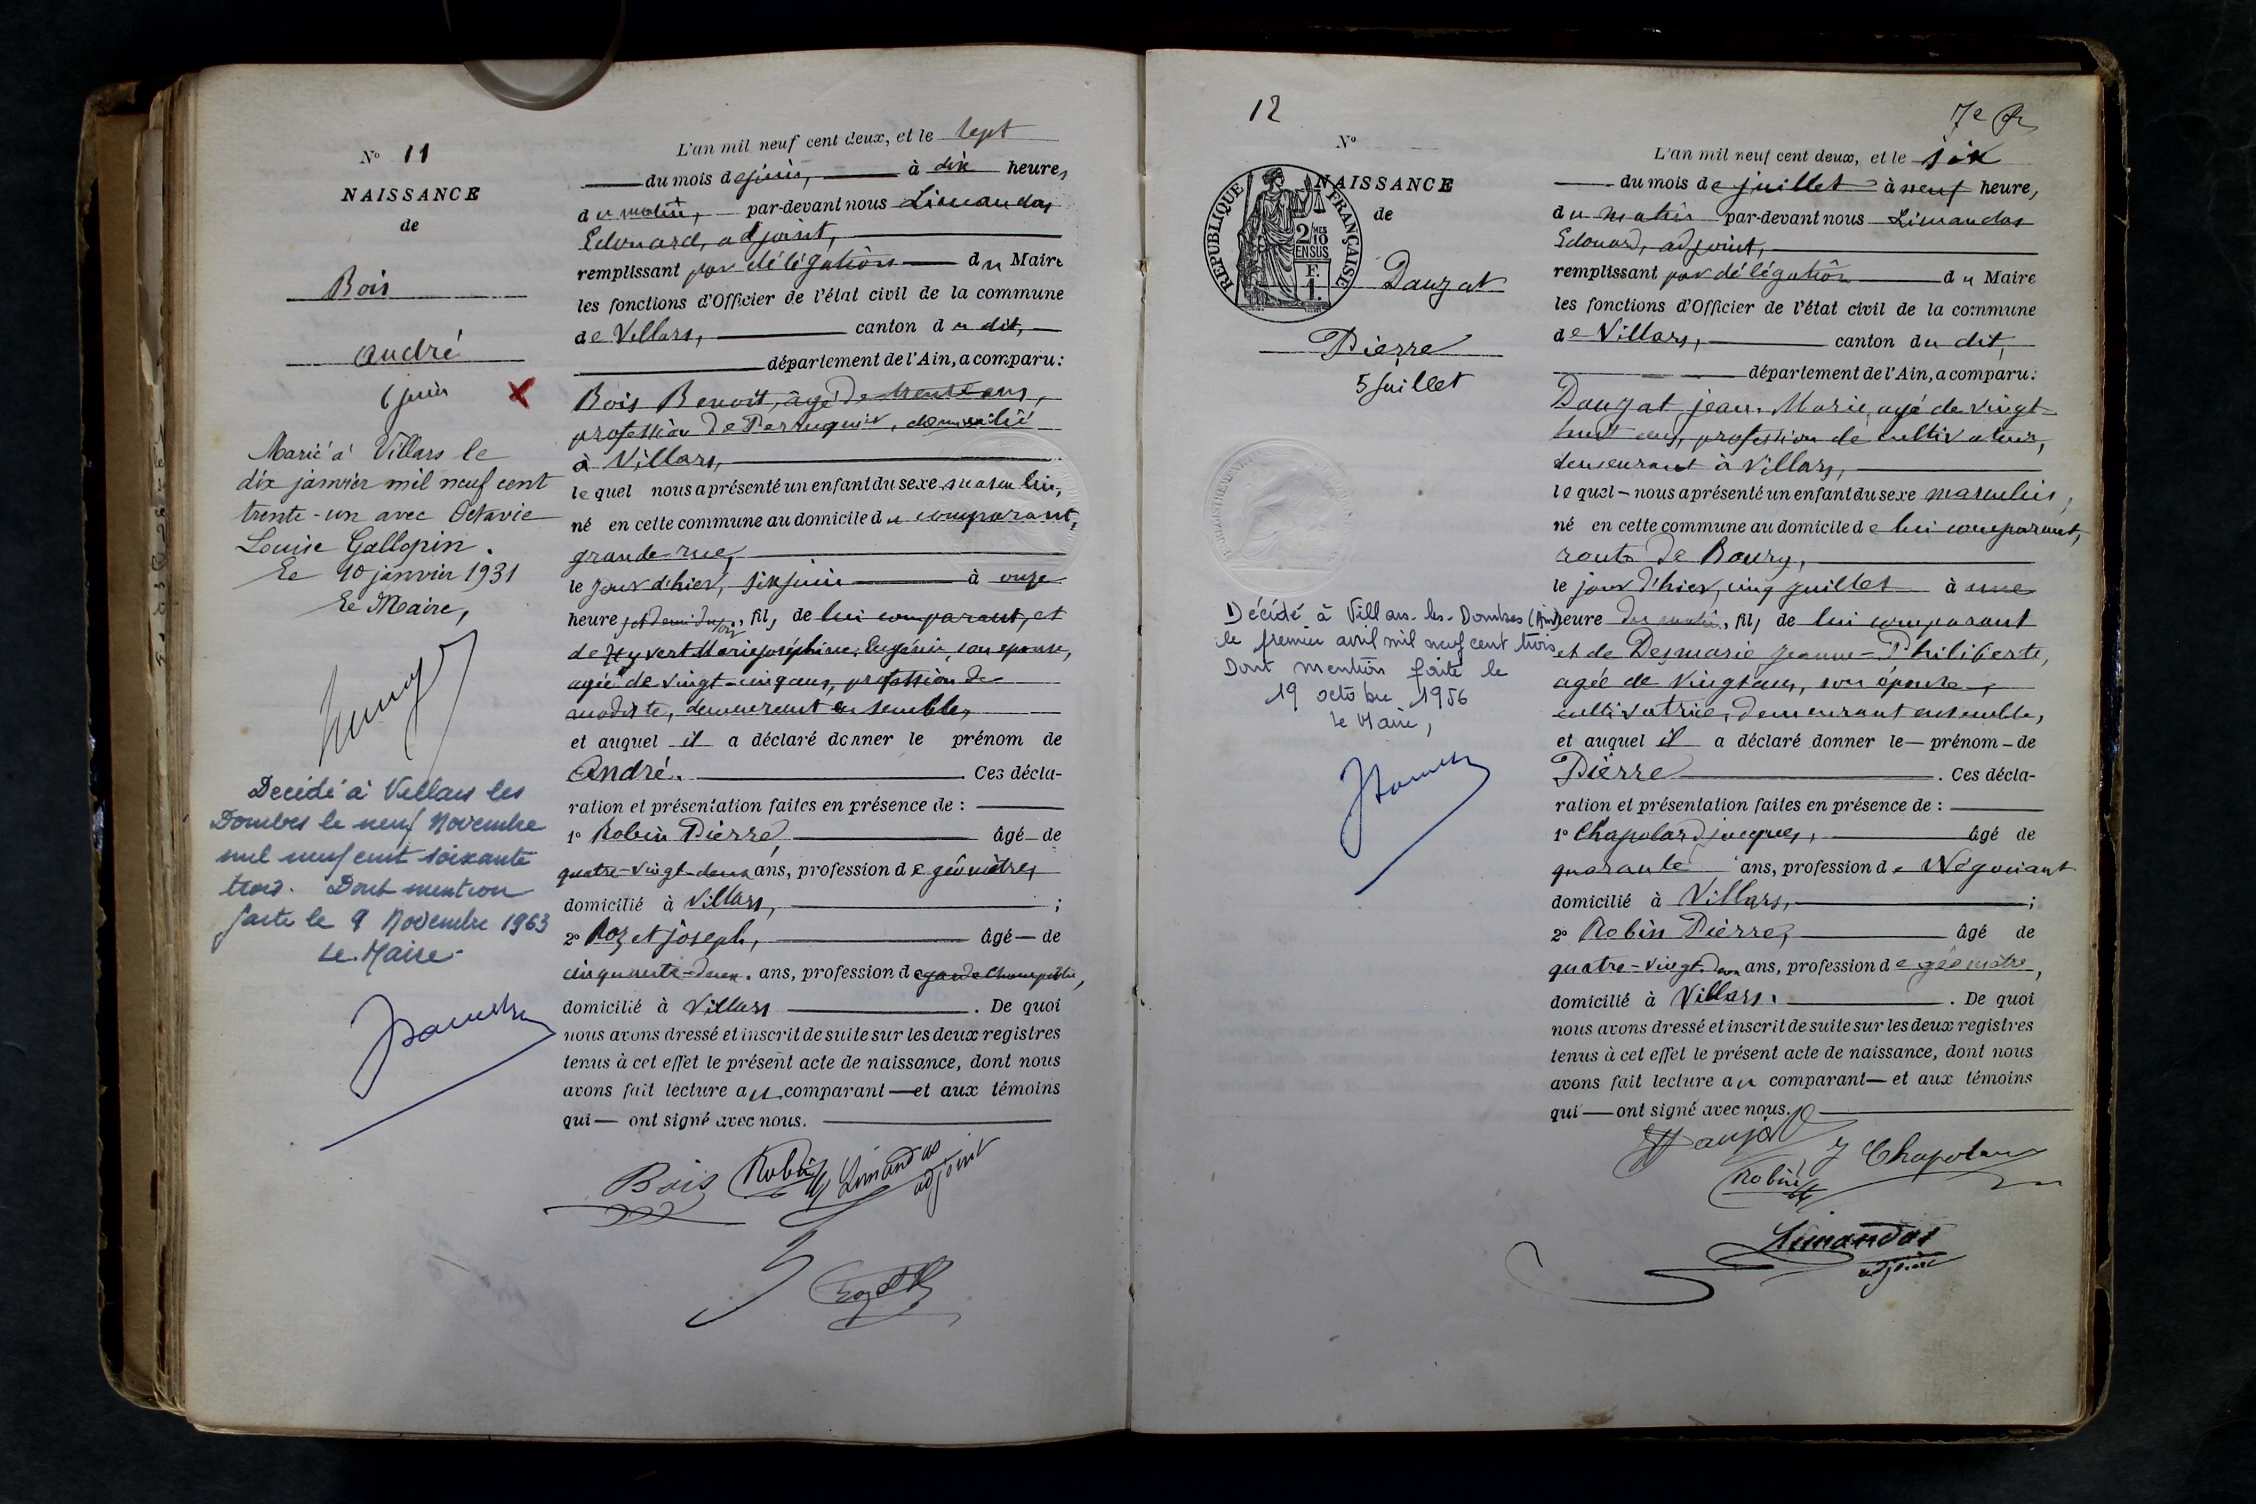 N° 11
NAISSANCE
de
Bois
André
6 juin
Marié à Villars le
dix janvier mil neuf cent
trente-un avec Octavie
Louise Gallopin.
Le 10 janvier 1931
Le Maire,
Décédé à Villars les
Dombes le neuf Novembre
mil neuf cent soixante
trois. Dont mention
faite le 9 Novembre 1963
Le Maire
L'an mil neuf cent deux, et le sept
du mois de juin, à dix heures
du matin, par-devant nous Limandas
Edouard, adjoint,
remplissant par délégation du Maire
les fonctions d'Officier de l'état civil de la commune
de Villars, canton du dit,
département de l'Ain, a comparu:
Bois Benoit, âgé de trente ans,
profession de Perruquier, domicilié
à Villars,
lequel nous a présenté un enfant du sexe masculin,
né en cette commune au domicile du comparant,
grande rue,
le jour d'hier, six juin à onze
heure et demi du soir, fils de lui comparant, et
de Hyvert Marie Joséphine Eugénie, son épouse,
agée de vingt-cinq ans, profession de
modiste, demeurant ensemble,
et auquel il a déclaré donner le prénom de
André. Ces décla-
ration et présentation faites en présence de :
1° Robin Pierre, âgé de
quatre-vingt-deux ans, profession de géomètre,
domicilié à Villars, ;
2° Rozet joseph, âgé de
cinquante-deux ans, profession de garde champêtre,
domicilié à Villars . De quoi
nous avons dressé et inscrit de suite sur les deux registres
tenus à cet effet le présent acte de naissance, dont nous
avons fait lecture au comparant et aux témoins
qui ont signé avec nous.
Bois Robin Limandas
adjoint
Rozet
12
7e
N°
NAISSANCE
de
REPUBLIQUE FRANÇAISE
2/10
EN SUS
F.
1.
Dauzat
Pierre
5 juillet
Décédé à Villars-les-Dombes (Ain)
le premier avril mil neuf cent trois
Dont mention faite le
19 octobre 1956
Le Maire,
L'an mil neuf cent deux, et le six
du mois de juillet à neuf heure,
du matin par-devant nous Limandas
Edouard, adjoint,
remplissant par délégation du Maire
les fonctions d'Officier de l'état civil de la commune
de Villars, canton du dit,
département de l'Ain, a comparu:
Dauzat jean-Marie, agé de vingt-
huit ans, profession de cultivateur,
demeurant à Villars,
lequel nous a présenté un enfant du sexe masculin,
né en cette commune au domicile de lui comparant,
route de Bourg,
le jour d'hier, cinq juillet à une
heure du matin, fils de lui comparant
et de Desmarie Jeanne-Philiberte,
agée de vingt ans, son épouse,
cultivatrice, demeurant ensemble,
et auquel il a déclaré donner le prénom de
Pierre . Ces décla-
ration et présentation faites en présence de :
1° Chapolard jacques, âgé de
quarante ans, profession de Négociant
domicilié à Villars, ;
2° Robin Pierre, âgé de
quatre-vingt-deux ans, profession de géomètre,
domicilié à Villars. . De quoi
nous avons dressé et inscrit de suite sur les deux registres
tenus à cet effet le présent acte de naissance, dont nous
avons fait lecture au comparant et aux témoins
qui ont signé avec nous.
Dauzat
J Chapolard
Robin
Limandas
adjoint